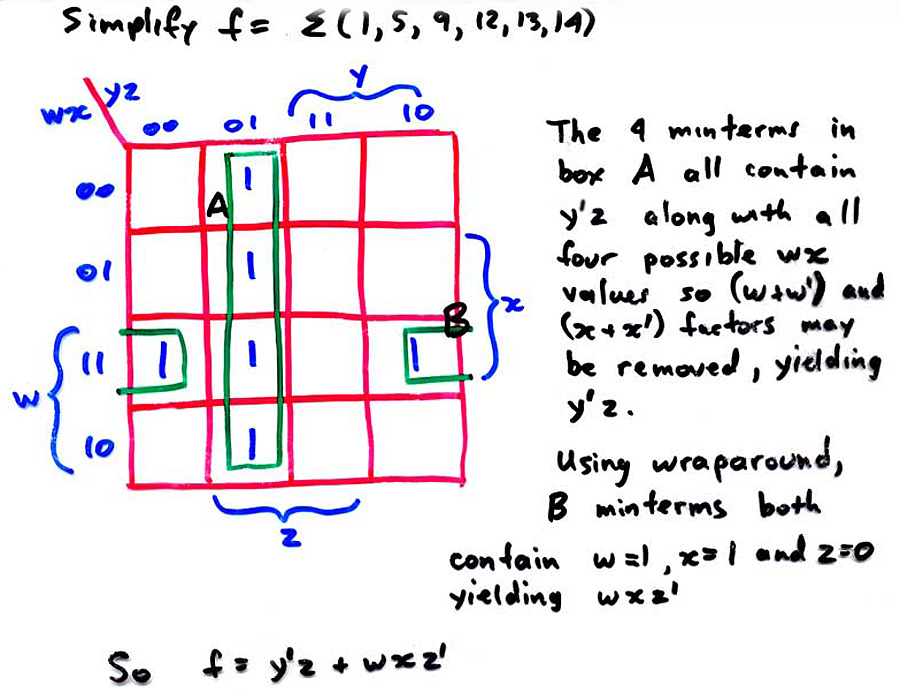 Simplify f = Σ(1, 5, 9, 12, 13, 14)
y
wx yz
00 01 11 10
00 1
A
01 1
x
B
11 1 1 1
w
10 1
z
The 4 minterms in
box A all contain
y'z along with all
four possible wx
values so (w+w') and
(x+x') factors may
be removed, yielding
y'z.
Using wraparound,
B minterms both
contain w=1, x=1 and z=0
yielding wxz'
So f = y'z + wxz'